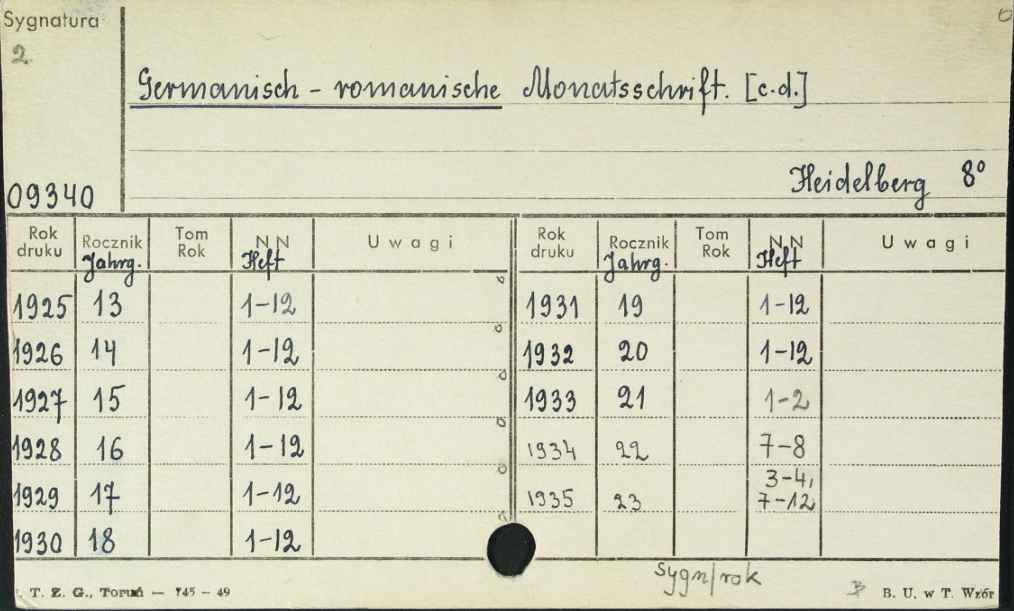 Sygnatura
2
Germanisch - romanische Monatsschrift. [c.d.]
Heidelberg 8°
09340
Rok druku Rocznik Tom Rok NN Uwagi Rok druku Rocznik Tom Rok NN Uwagi
Jahrg. Heft Jahrg. Heft
1925 13 1-12 1931 19 1-12
1926 14 1-12 1932 20 1-12
1927 15 1-12 1933 21 1-2
1928 16 1-12 1934 22 7-8
1929 17 1-12 1935 23 3-4, 7-12
1930 18 1-12
Sygn/rok
T. Z. G., Toruń — 745 - 49 B. U. w T. Wzór